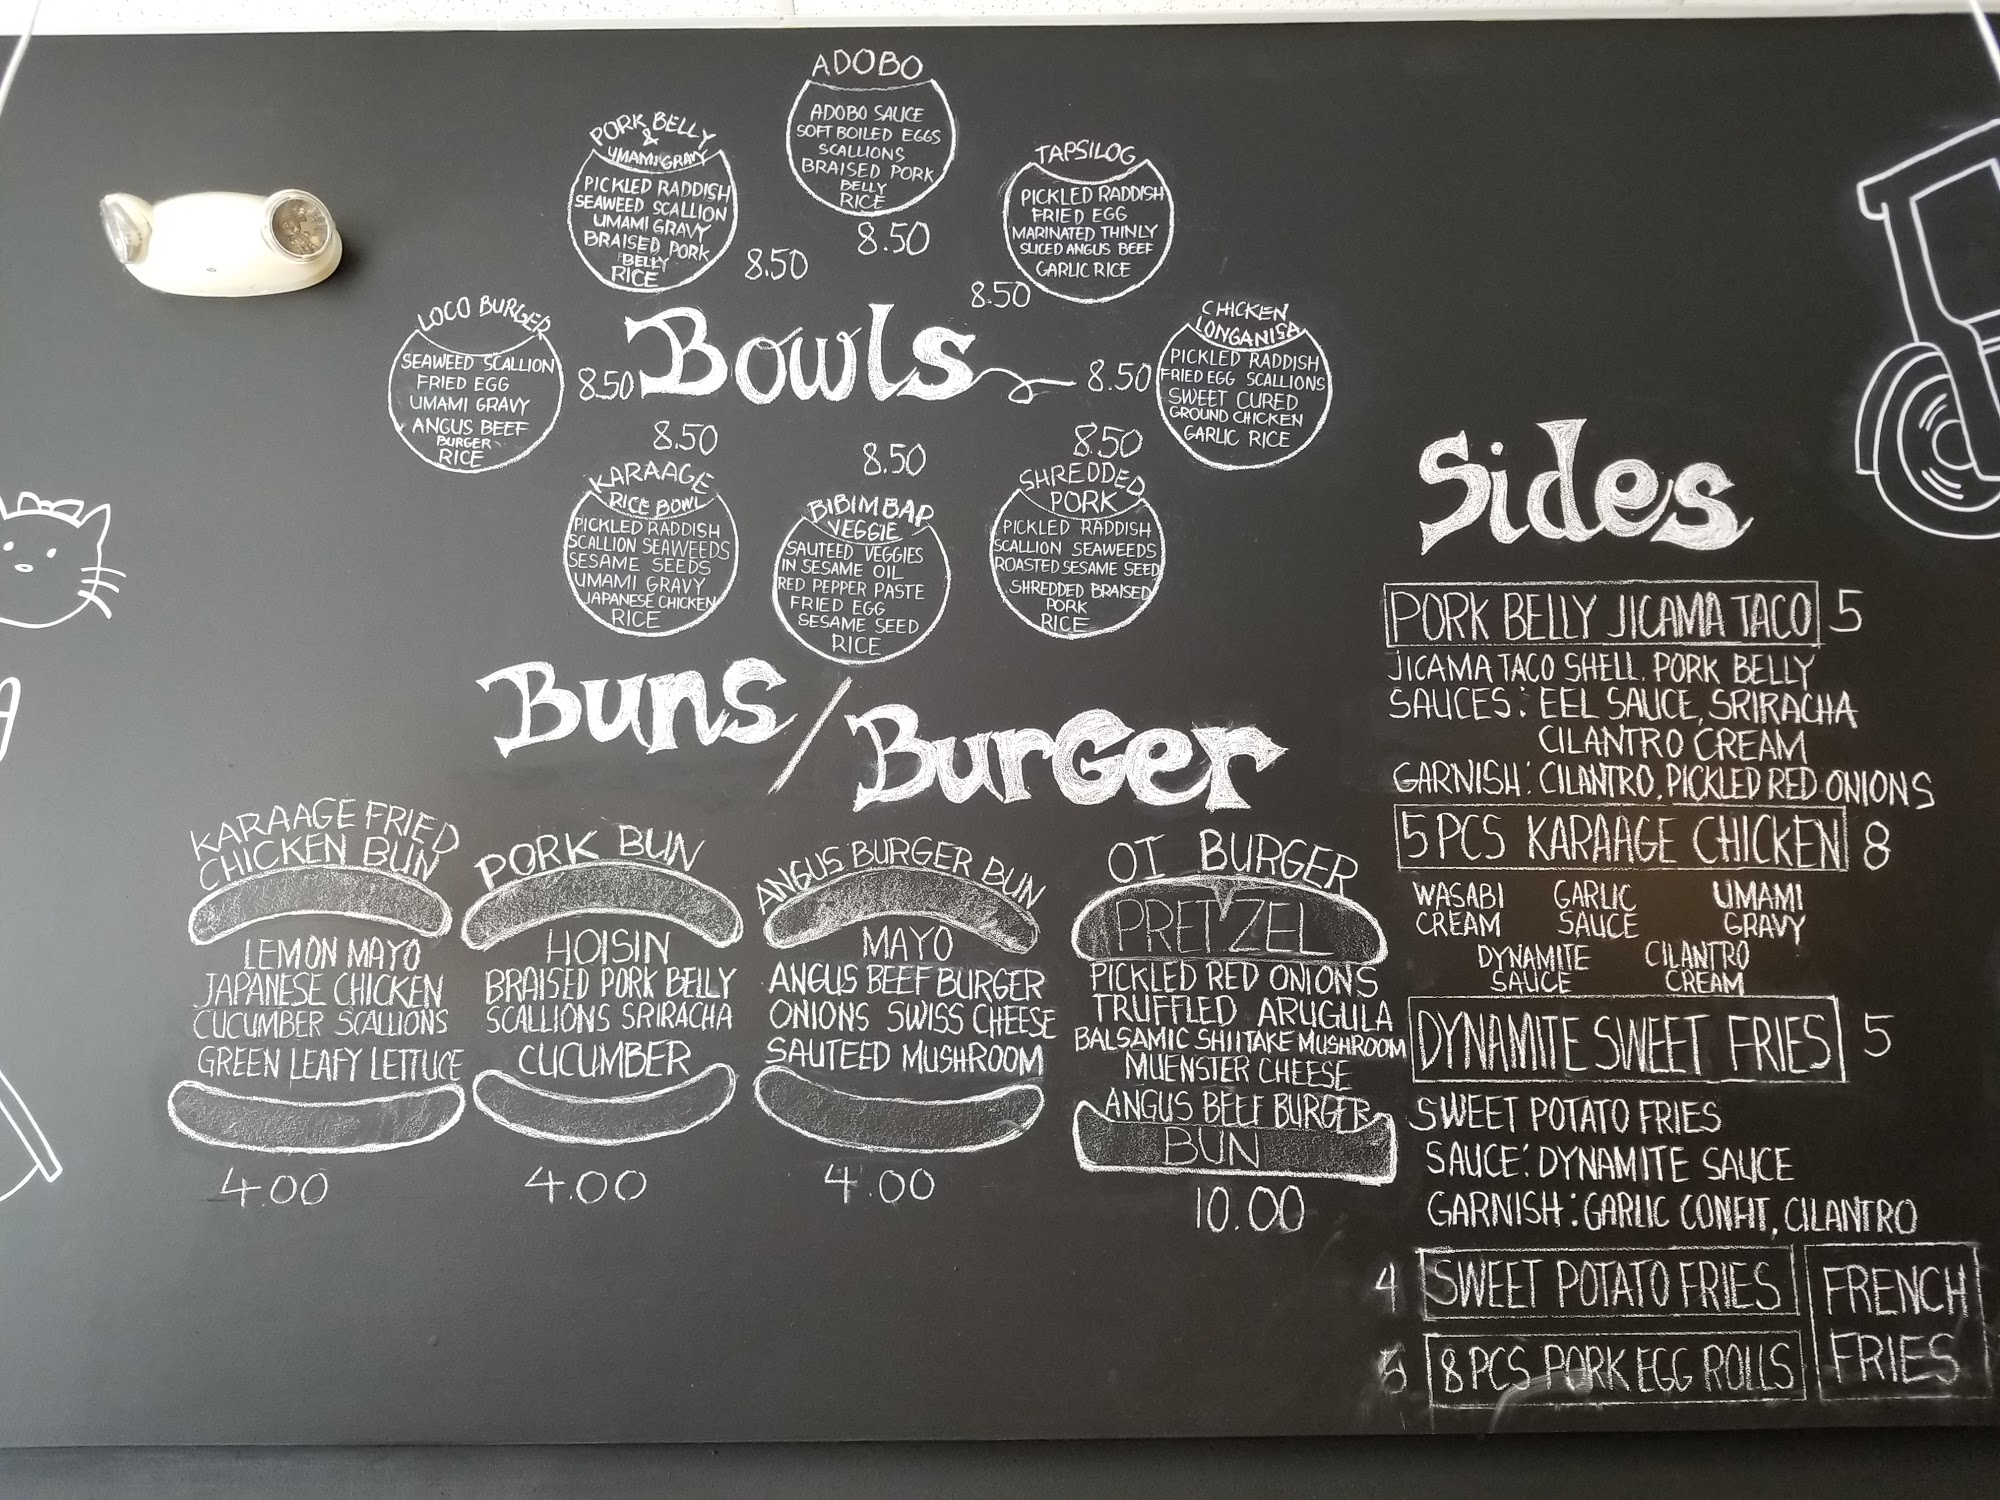 ADOBO
ADOBO SAUCE
SOFT BOILED EGGS
SCALLIONS
BRAISED PORK
BELLY
RICE
8.50
PORK BELLY
&
UMAMI GRAVY
PICKLED RADDISH
SEAWEED SCALLION
UMAMI GRAVY
BRAISED PORK
BELLY
RICE
8.50
TAPSILOG
PICKLED RADDISH
FRIED EGG
MARINATED THINLY
SLICED ANGUS BEEF
GARLIC RICE
8.50
LOCO BURGER
SEAWEED SCALLION
FRIED EGG
UMAMI GRAVY
ANGUS BEEF
BURGER
RICE
8.50
Bowls
8.50
CHICKEN
LONGANISA
PICKLED RADDISH
FRIED EGG SCALLIONS
SWEET CURED
GROUND CHICKEN
GARLIC RICE
8.50
KARAAGE
RICE BOWL
PICKLED RADDISH
SCALLION SEAWEEDS
SESAME SEEDS
UMAMI GRAVY
JAPANESE CHICKEN
RICE
8.50
BIBIMBAP
VEGGIE
SAUTEED VEGGIES
IN SESAME OIL
RED PEPPER PASTE
FRIED EGG
SESAME SEED
RICE
8.50
SHREDDED
PORK
PICKLED RADDISH
SCALLION SEAWEEDS
ROASTED SESAME SEED
SHREDDED BRAISED
PORK
RICE
Buns/Burger
KARAAGE FRIED
CHICKEN BUN
LEMON MAYO
JAPANESE CHICKEN
CUCUMBER SCALLIONS
GREEN LEAFY LETTUCE
4.00
PORK BUN
HOISIN
BRAISED PORK BELLY
SCALLIONS SRIRACHA
CUCUMBER
4.00
ANGUS BURGER BUN
MAYO
ANGUS BEEF BURGER
ONIONS SWISS CHEESE
SAUTEED MUSHROOM
4.00
OI BURGER
PRETZEL
PICKLED RED ONIONS
TRUFFLED ARUGULA
BALSAMIC SHIITAKE MUSHROOM
MUENSTER CHEESE
ANGUS BEEF BURGER
BUN
10.00
Sides
PORK BELLY JICAMA TACO 5
JICAMA TACO SHELL. PORK BELLY
SAUCES: EEL SAUCE, SRIRACHA
CILANTRO CREAM
GARNISH: CILANTRO, PICKLED RED ONIONS
5 PCS KARAAGE CHICKEN 8
WASABI GARLIC UMAMI
CREAM SAUCE GRAVY
DYNAMITE CILANTRO
SAUCE CREAM
DYNAMITE SWEET FRIES 5
SWEET POTATO FRIES
SAUCE: DYNAMITE SAUCE
GARNISH: GARLIC CONFIT, CILANTRO
4 SWEET POTATO FRIES
5 8 PCS PORK EGG ROLLS
FRENCH
FRIES